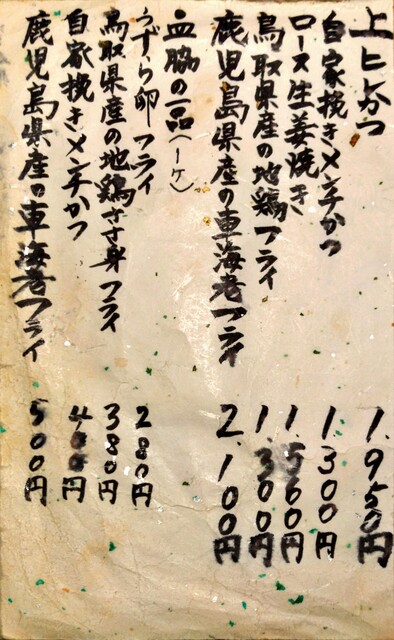 上ヒレかつ 1.950円
自家挽きメンチかつ 1.300円
ロース生姜焼き 1.500円
鳥取県産の地鶏フライ 1.300円
鹿児島県産の車海老フライ 2.100円
皿脇の一品(一ケ)
うずら卵フライ 280円
鳥取県産の地鶏ささ身フライ 380円
自家挽きメンチかつ 400円
鹿児島県産の車海老フライ 500円